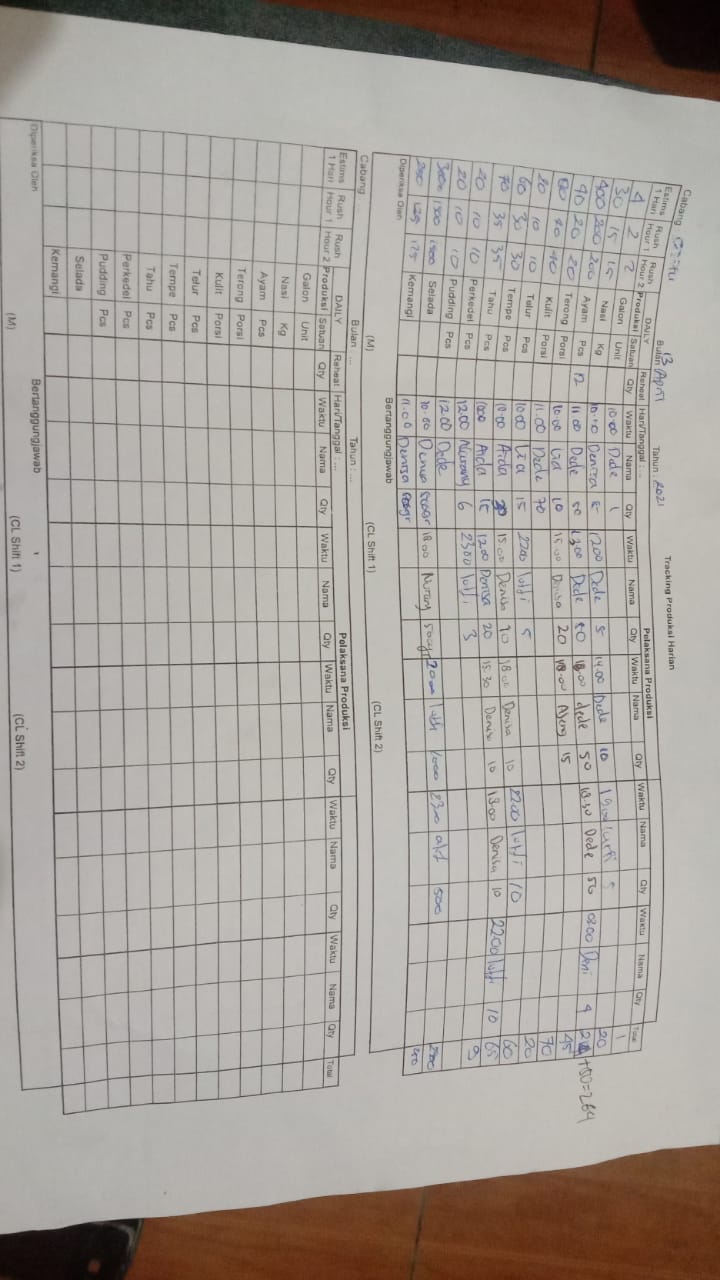 Tracking Produksi Harian
Cabang
Bulan 13 April Tahun : 2021
Estims 1 Hari Rush Hour 1 Rush Hour 2 DAILY Produksi Satuan Reheat Qty Hari/Tanggal : ... Pelaksana Produksi
Waktu Nama Qty Waktu Nama Qty Waktu Nama Qty Waktu Nama Qty Waktu Nama Qty Total
4 2 2 Galon Unit 10.00 Dede 1 1
30 15 15 Nasi Kg 10.10 Denisa 5 12.00 Dede 5 14.00 Dede 10 20
400 200 200 Ayam Pcs 12 11.00 Dede 50 1300 Dede Dede 50 18.30 Dede 50 4 =264
40 20 20 Terong Porsi 10.00 Lia 10 15.00 Denisa 20 18.00 15 45
Kulit Porsi 11.00 Dede 70 70
20 10 10 Telur Pcs 10.00 Lia 15 2200 lutfi 5 20
60 30 30 Tempe Pcs 10.00 Aida 15.00 Denisa 10 18.00 Denisa 10 2200 lutfi 10 60
70 35 35 Tahu Pcs 1000 Aida 15 1200 Denisa 20 15.30 Denisa 10 18.00 Denisa 10 2200 lutfi 10 65
20 10 10 Perkedel Pcs 1200 Nurany 6 2300 lutfi 3 9
20 10 10 Pudding Pcs 1200 Dede
3000 1500 1500 Selada 10.00 Denisa 18.00 Nurany 2000 1000 2300 500
Kemangi 11.00 Denisa
Diperiksa Oleh Bertanggungjawab
(M) (CL Shift 1) (CL Shift 2)
Cabang Bulan : ... Tahun : ...
Estims 1 Hari Rush Hour 1 Rush Hour 2 DAILY Produksi Satuan Reheat Qty Hari/Tanggal : ... Pelaksana Produksi
Waktu Nama Qty Waktu Nama Qty Waktu Nama Qty Waktu Nama Qty Waktu Nama Qty Total
Galon Unit
Nasi Kg
Ayam Pcs
Terong Porsi
Kulit Porsi
Telur Pcs
Tempe Pcs
Tahu Pcs
Perkedel Pcs
Pudding Pcs
Selada
Kemangi
Diperiksa Oleh Bertanggungjawab
(M) (CL Shift 1) (CL Shift 2)